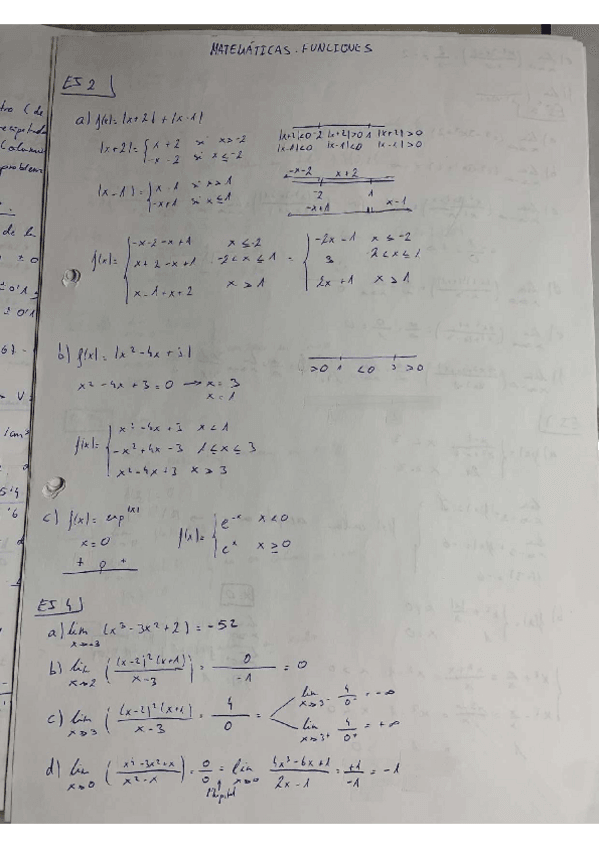 MATEMÁTICAS. FUNCIONES
EJ 2
a) f(x) = |x+2| + |x-1|
|x+2| = { x+2 si x>-2
-x-2 si x≤-2
|x+2|<0 -2 |x+2|>0 1 |x+2|>0
|x-1|<0 |x-1|<0 |x-1|>0
|x-1| = { x-1 si x>1
-x+1 si x≤1
-x-2 x+2
-2 1
-x+1 x-1
f(x) = { -x-2-x+1 x≤-2
x+2-x+1 -2<x≤1
x-1+x+2 x>1
= { -2x-1 x≤-2
3 -2<x≤1
2x+1 x>1
b) f(x) = |x²-4x+3|
x²-4x+3=0 → x=3
x=1
>0 1 <0 3 >0
f(x) = { x²-4x+3 x<1
-x²+4x-3 1≤x≤3
x²-4x+3 x>3
c) f(x) = exp|x|
x=0
+ 0 +
f(x) = { e-x x<0
ex x≥0
EJ 4
a) lim x→-3 (x³-3x²+2) = -52
b) lim x→2 ((x-2)²(x+1)/x-3) = 0/-1 = 0
c) lim x→3 ((x-2)²(x+1)/x-3) = 4/0 =
lim x→3- 4/0- = -∞
lim x→3+ 4/0+ = +∞
d) lim x→0 (-3x²+x/x²-x) = 0/0 = lim x→0 4x³-6x+1/2x-1 = +1/-1 = -1
L'Hopital